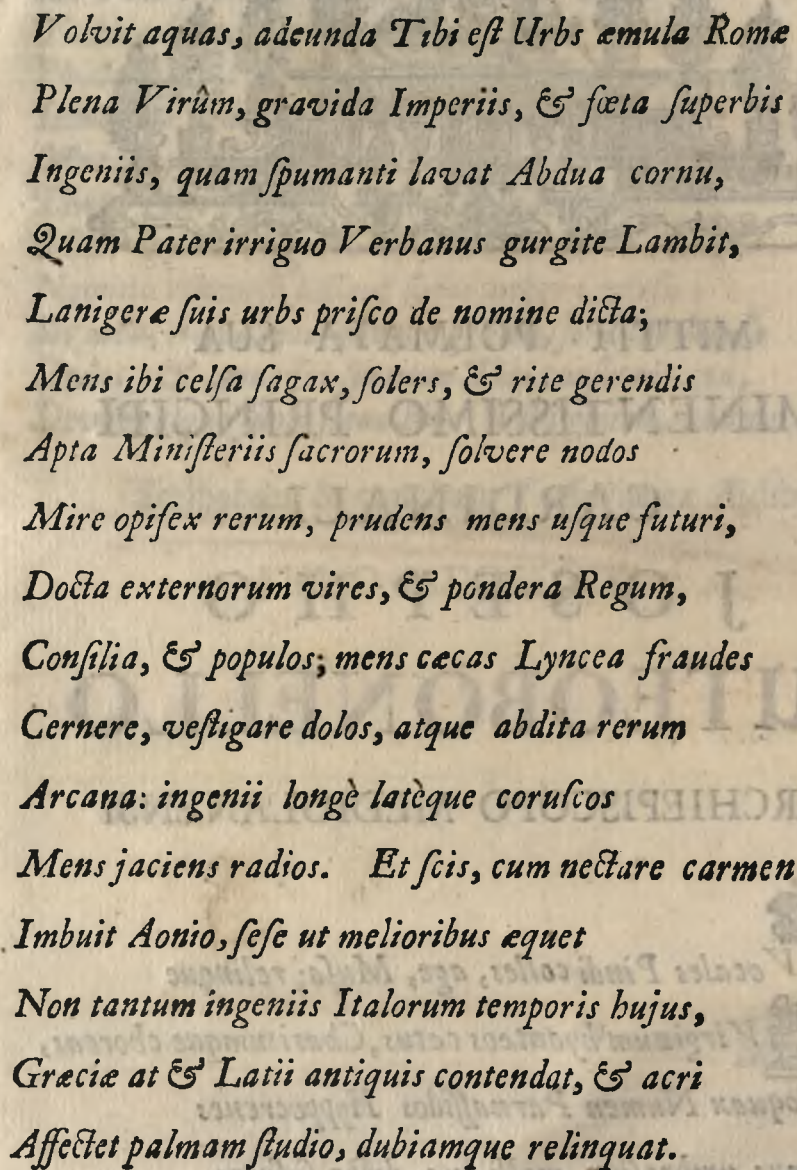 Volvit aquas, adeunda Tibi eſt Urbs æmula Romæ
Plena Virûm, gravida Imperiis, & fœta ſuperbis
Ingeniis, quam ſpumanti lavat Abdua cornu,
Quam Pater irriguo Verbanus gurgite Lambit,
Lanigeræ ſuis urbs priſco de nomine dicta;
Mens ibi celſa ſagax, ſolers, & rite gerendis
Apta Miniſteriis ſacrorum, ſolvere nodos
Mire opifex rerum, prudens mens uſque futuri,
Docta externorum vires, & pondera Regum,
Conſilia, & populos; mens cæcas Lyncea fraudes
Cernere, veſtigare dolos, atque abdita rerum
Arcana: ingenii longè latèque coruſcos
Mens jaciens radios. Et ſcis, cum nectare carmen
Imbuit Aonio, ſeſe ut melioribus æquet
Non tantum ingeniis Italorum temporis hujus,
Græciæ at & Latii antiquis contendat, & acri
Affectet palmam ſtudio, dubiamque relinquat.